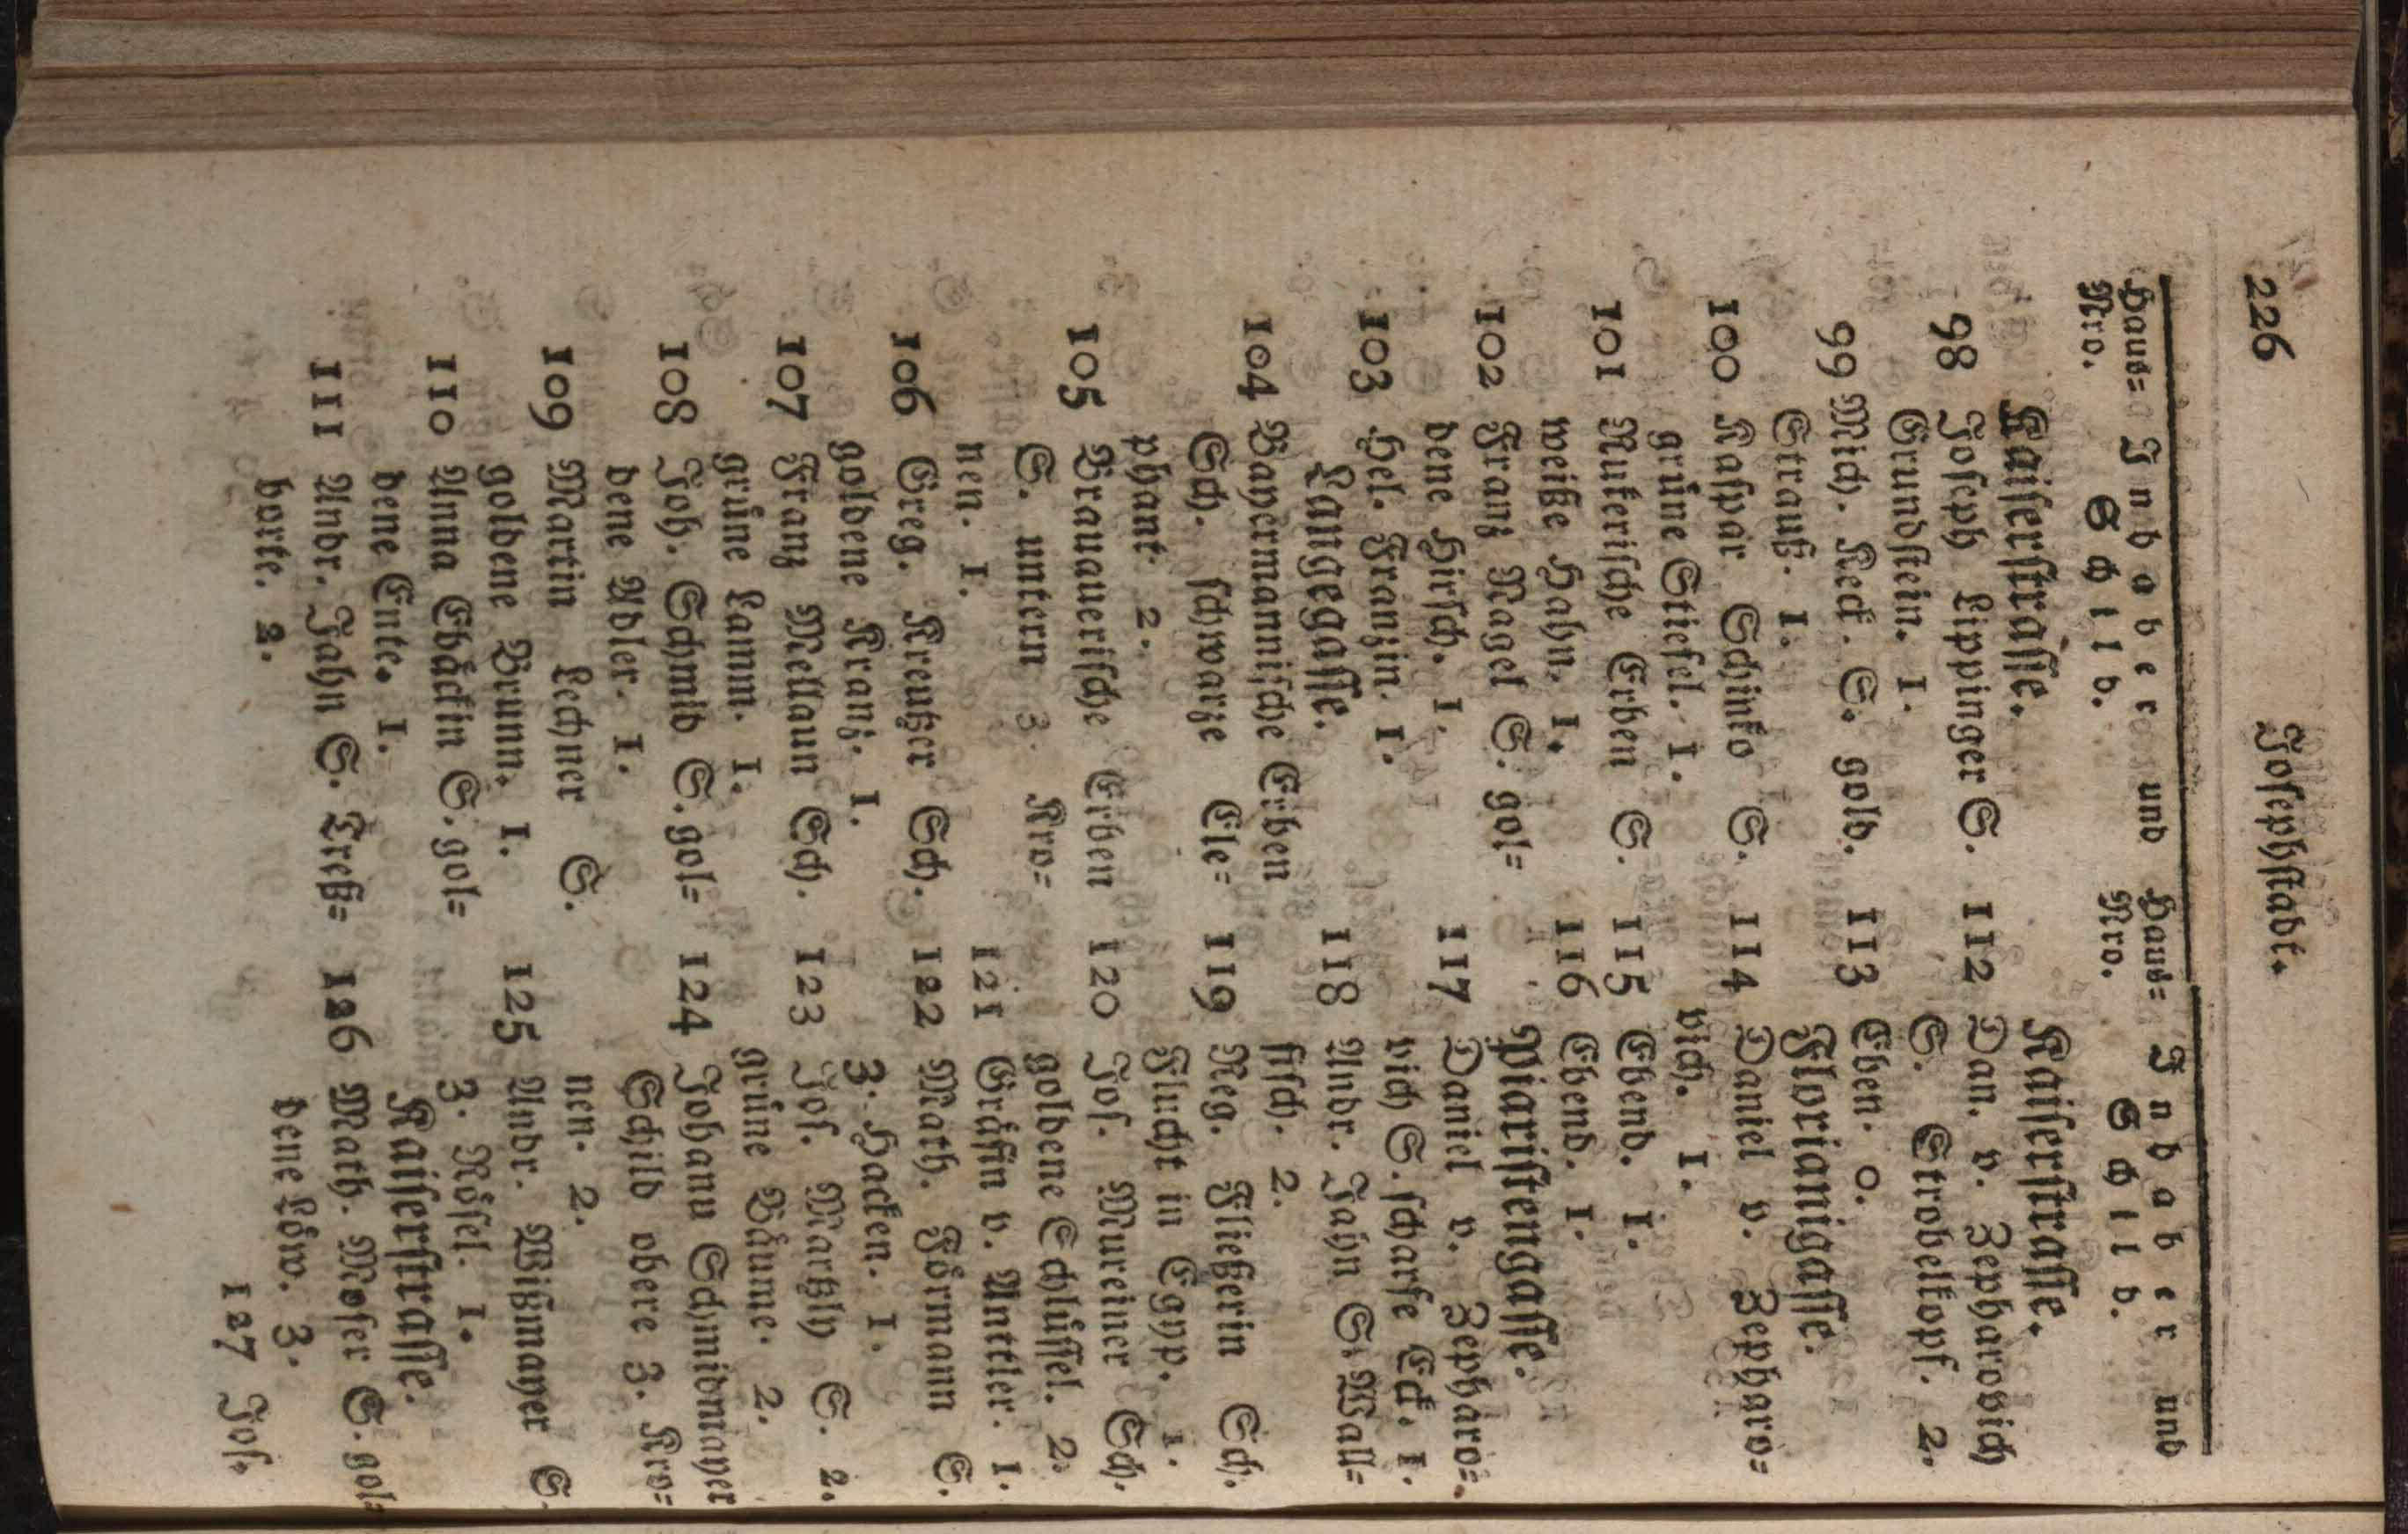 226 Josephstadt.
Haus= Inhaber und
Nro. Schild.
Kaiserstrasse.
98 Joseph Lippinger S.
Grundstein. 1.
99 Mich. Reck. S. gold.
Strauß. 1.
100 Kaspar Schinko S.
grüne Stiefel. 1.
101 Rukerische Erben S.
weiße Hahn. 1.
102 Franz Nagel S. gol=
dene Hirsch. 1.
103 Hel. Franzin. 1.
Langegasse.
104 Bayermannische Erben
Sch. schwarze Ele=
phant. 2.
105 Braunauerische Erben
S. untern 3 Kro=
nen. 1.
106 Greg. Kreutzer Sch.
goldene Kranz. 1.
107 Franz Mellaun Sch.
grüne Lamm. 1.
108 Joh. Schmid S. gol=
dene Adler. 1.
109 Martin Lechner S.
goldene Brunn. 1.
110 Anna Ebäckin S. gol=
dene Ente. 1.
111 Andr. Jahn S. Treß=
borte. 2.
Haus= Inhaber und
Nro. Schild.
Kaiserstrasse.
112 Dan. v. Zepharovich
S. Strobelkopf. 2.
113 Eben. 0.
Florianigasse.
114 Daniel v. Zepharo=
vich. 1.
115 Ebend. 1.
116 Ebend. 1.
Piaristengasse.
117 Daniel v. Zepharo=
vich S. scharfe Eck. 1.
118 Andr. Jahn S. Wall=
fisch. 2.
119 Reg. Fließerin Sch.
Flucht in Egyp. 1.
120 Jos. Mureiner Sch.
goldene Schlüssel. 2.
121 Gräfin v. Anttler. 1.
122 Math. Förmann S.
3. Hacken. 1.
123 Jos. Marßly S. 2.
grüne Bäume. 2.
124 Johann Schmidmayer
Schild obere 3. Kro=
nen. 2.
125 Andr. Wißmayer S.
3. Rösel. 1.
Kaiserstrasse.
126 Math. Moser S. gol=
dene Löw. 3.
127 Jos.